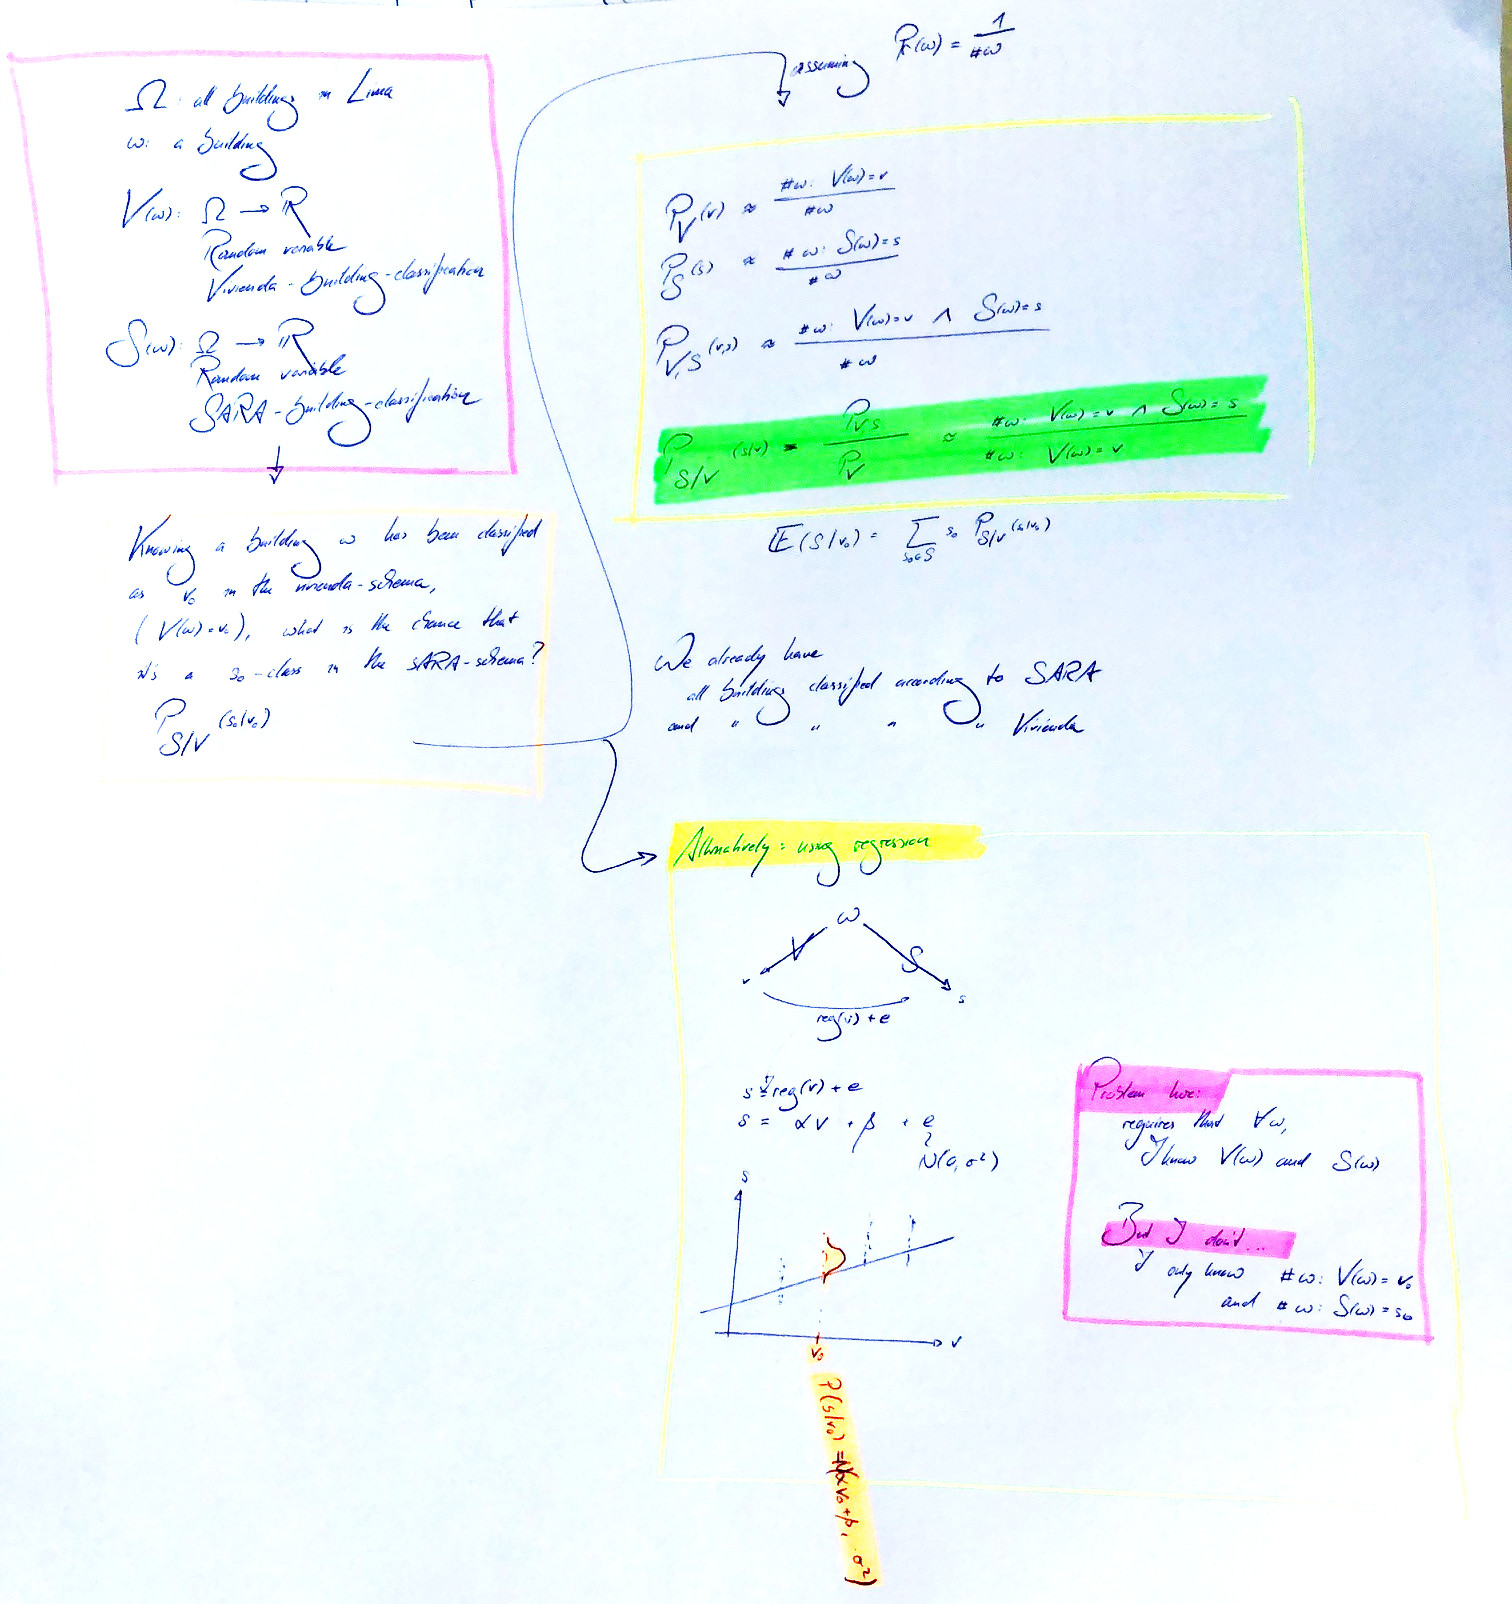 Ω: all buildings in Lima
ω: a building
V(ω): Ω → ℝ
Random variable
Vivienda-building-classification
S(ω): Ω → ℝ
Random variable
SARA-building-classification
Knowing a building ω has been classified
as v₀ in the vivienda-schema,
(V(ω)=v₀), what is the chance that
it's a s₀-class in the SARA-schema?
P_{S/V}(s₀/v₀)
assuming P(ω) = 1/#ω
P_V(v) ≈ #ω: V(ω)=v / #ω
P_S(s) ≈ #ω: S(ω)=s / #ω
P_{V,S}(v,s) ≈ #ω: V(ω)=v ∧ S(ω)=s / #ω
P_{S/V}(s/v) = P_{VS} / P_V ≈ #ω: V(ω)=v ∧ S(ω)=s / #ω: V(ω)=v
E(S/v₀) = Σ_{s₀∈S} s₀ P_{S/V}(s₀/v₀)
We already have
all buildings classified according to SARA
and " " " " Vivienda
Alternatively: using regression
ω
V S
v s
reg(v) + e
s = reg(v) + e
s = αv + β + e
~
N(0, σ²)
s
v
v₀
P(s/v₀) = N(αv₀+β, σ²)
Problem here:
requires that ∀ω,
I know V(ω) and S(ω)
But I don't...
I only know #ω: V(ω)=v₀
and #ω: S(ω)=s₀